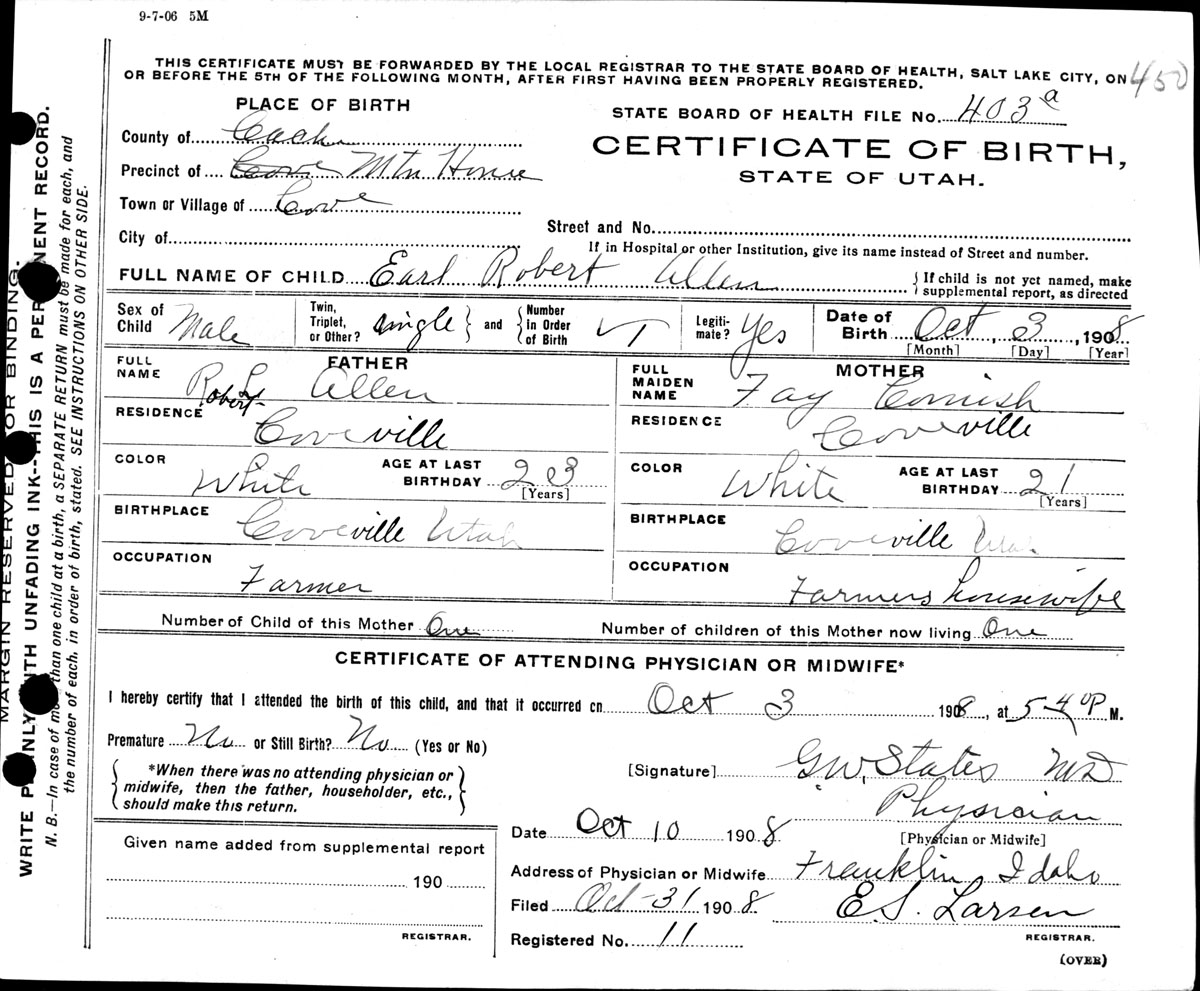 9-7-06 5M
THIS CERTIFICATE MUST BE FORWARDED BY THE LOCAL REGISTRAR TO THE STATE BOARD OF HEALTH, SALT LAKE CITY, ON
OR BEFORE THE 5TH OF THE FOLLOWING MONTH, AFTER FIRST HAVING BEEN PROPERLY REGISTERED.
450
PLACE OF BIRTH
STATE BOARD OF HEALTH FILE No. 403 a
County of Cache
CERTIFICATE OF BIRTH,
Precinct of Cove Mtn Home
STATE OF UTAH.
Town or Village of Cove
Street and No.
City of
If in Hospital or other Institution, give its name instead of Street and number.
FULL NAME OF CHILD Earl Robert Allen { If child is not yet named, make
supplemental report, as directed
Sex of Child Male Twin, Triplet, or Other? single } and { Number in Order of Birth Legiti-mate? Yes Date of Birth Oct, 3, 1908
[Month] [Day] [Year]
FATHER
FULL NAME Robt L Allen
Robert
MOTHER
FULL MAIDEN NAME Fay Cornish
RESIDENCE Coveville
RESIDENCE Coveville
COLOR White AGE AT LAST BIRTHDAY 23 [Years]
COLOR White AGE AT LAST BIRTHDAY 21 [Years]
BIRTHPLACE Coveville Utah
BIRTHPLACE Coveville Utah
OCCUPATION Farmer
OCCUPATION Farmers housewife
Number of Child of this Mother One Number of children of this Mother now living One
CERTIFICATE OF ATTENDING PHYSICIAN OR MIDWIFE*
I hereby certify that I attended the birth of this child, and that it occurred on Oct 3 1908, at 5-40 P M.
Premature No or Still Birth? No (Yes or No)
{ *When there was no attending physician or
midwife, then the father, householder, etc.,
should make this return. }
[Signature] G W, States MD
Physician
[Physician or Midwife]
Date Oct 10 1908
Given name added from supplemental report
190
REGISTRAR.
Address of Physician or Midwife Franklin Idaho
Filed Oct-31 1908 E.S. Larsen
REGISTRAR.
Registered No. 11
(OVER)
MARGIN RESERVED FOR BINDING.
WRITE PLAINLY WITH UNFADING INK--THIS IS A PERMANENT RECORD.
N. B.—In case of more than one child at a birth, a SEPARATE RETURN must be made for each, and
the number of each, in order of birth, stated. SEE INSTRUCTIONS ON OTHER SIDE.